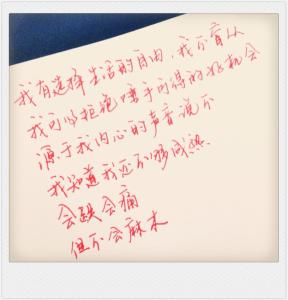 我有选择生活的自由，我不盲从
我可以拒绝唾手可得的好机会
源于我内心的声音说不
我知道我还不够成熟
会跌会痛
但不会麻木